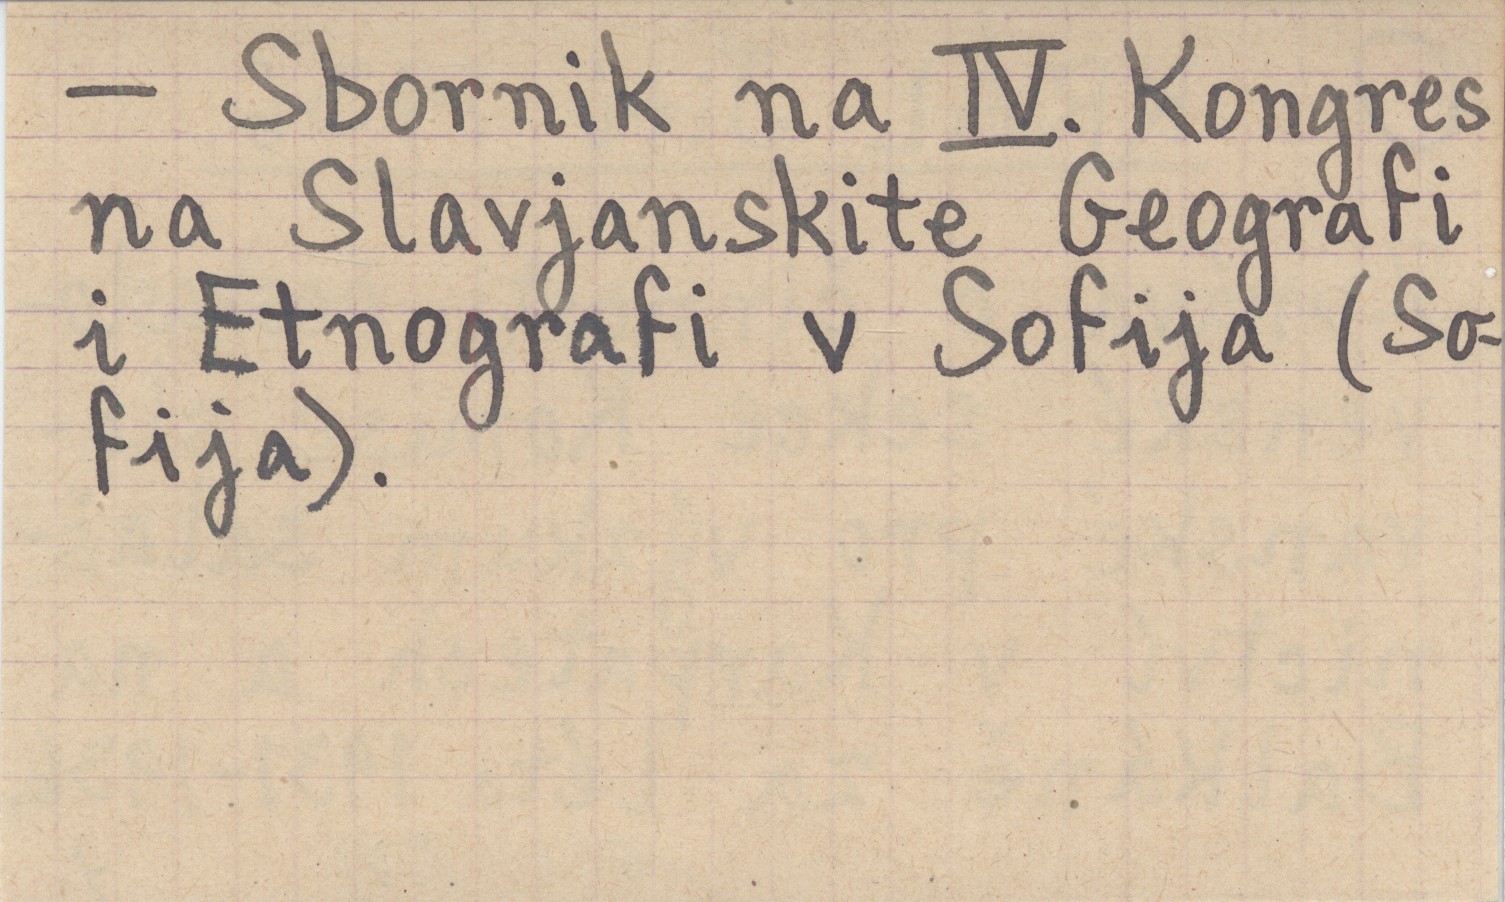 — Sbornik na IV. Kongres
na Slavjanskite Geografi
i Etnografi v Sofija (So-
fija).